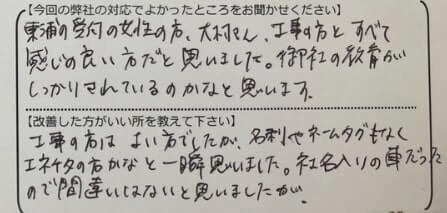 【今回の弊社の対応でよかったところをお聞かせください】
東浦の受付の女性の方、大村さん、工事の方と すべて
感じの良い方だと思いました。御社の教育が
しっかりされているのかなと思います。
【改善した方がいい所を教えて下さい】
工事の方は よい方でしたが、名刺やネームタグもなく
エネチタの方かなと一瞬思いました。社名入りの車だった
ので間違いはないと思いましたが。